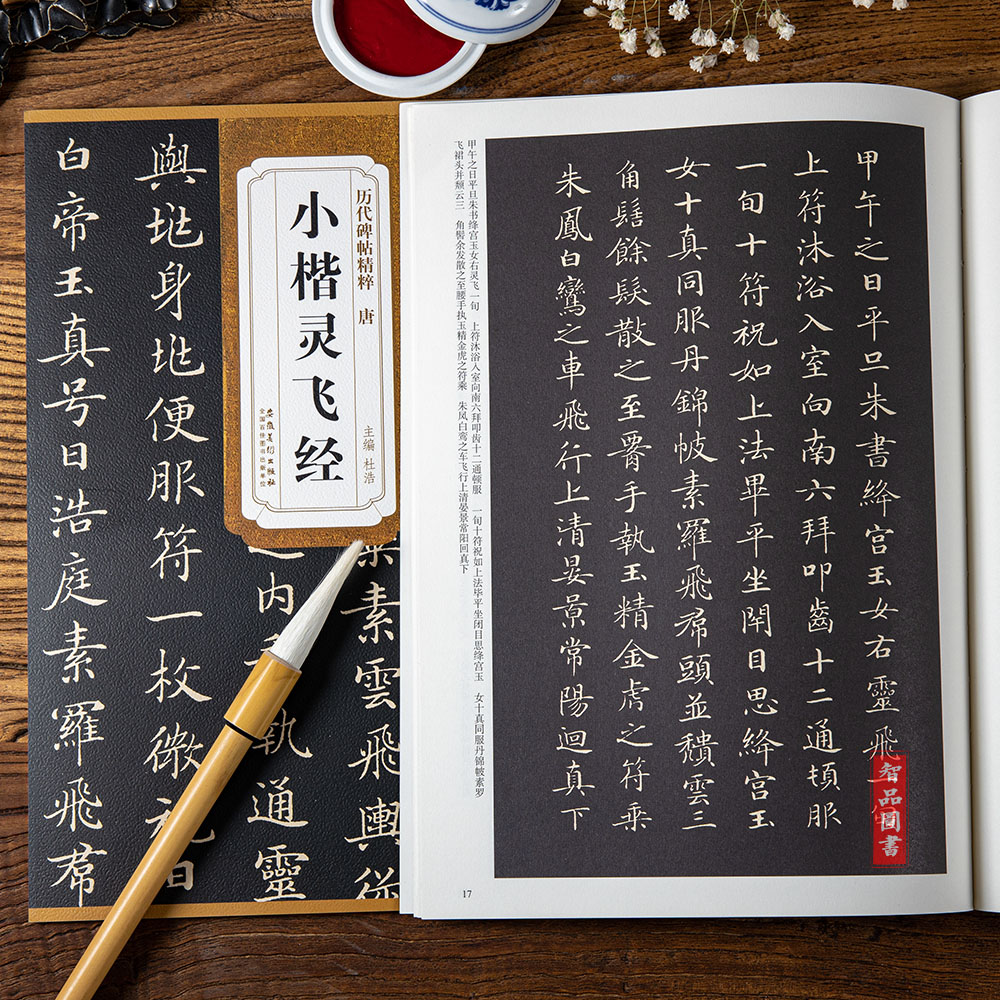 历代碑帖精粹 唐
小楷灵飞经
主编 杜浩
安徽美术出版社
全国百佳图书出版单位
輿從
素雲飛
執通靈
內
輿兆身
兆便服符一枚微祝曰
白帝玉真号曰浩庭素羅飛帬
甲午之日平旦朱書絳宮玉女右靈飛一
上符沐浴入室向南六拜叩齒十二通頓服
一旬十符祝如上法畢平坐閇目思絳宮玉
女十真同服丹錦帔素羅飛帬頭並穨雲三
角髻餘髮散之至腰手執玉精金虎之符乗
朱鳳白鸞之車飛行上清晏景常陽迴真下
甲午之日平旦朱书绛宫玉女右灵飞一旬 上符沐浴入室向南六拜叩齿十二通顿服 一旬十符祝如上法毕平坐闭目思绛宫玉 女十真同服丹锦帔素罗
飞裙头并颓云三 角髻余发散之至腰手执玉精金虎之符乘 朱凤白鸾之车飞行上清晏景常阳回真下
17
智品圖書